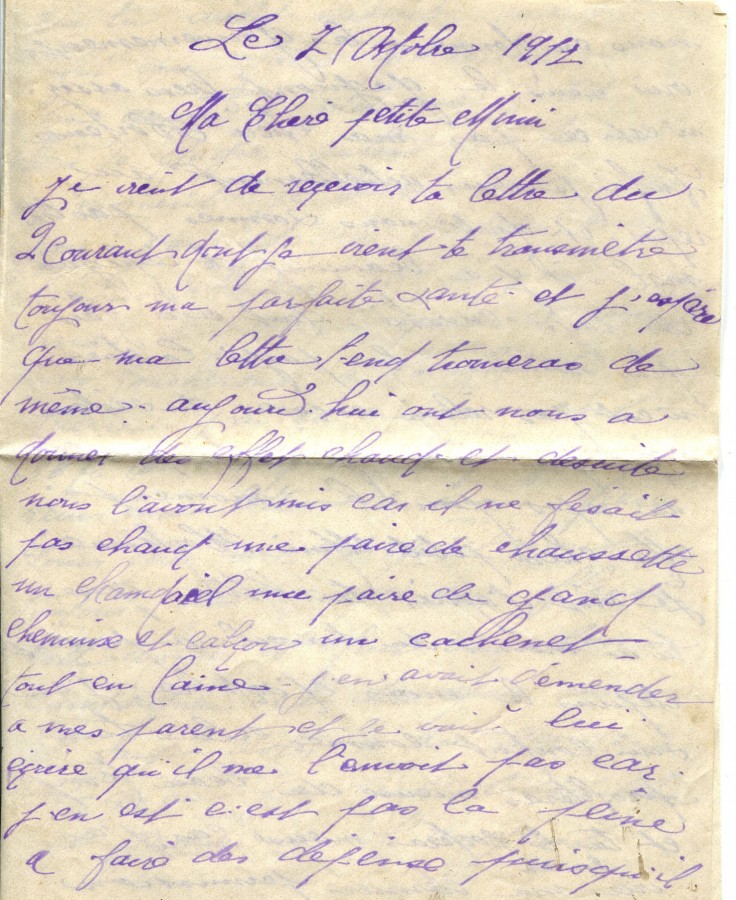 Le 7 Octobre 1917
Ma Cheré petite Mimi
Je vient de reçevoir ta lettre du
2 courant dont je vient te transmètre
toujour ma parfaite santé et j'espére
que ma lettre t'end trouveras de
même. aujourd'hui ont nous a
donner des effet chaud et desuite
nous l'avont mis car il ne fesait
pas chaud une paire de chaussette
un chandail une paire de gand
chemise et calçon un cachenet
tout en laine. j'en avait demender
a mes parent et je vait lui
écrire qu'il me l'envoit pas car
j'en est c'est pas la peine
a faire des defense puisqu'il